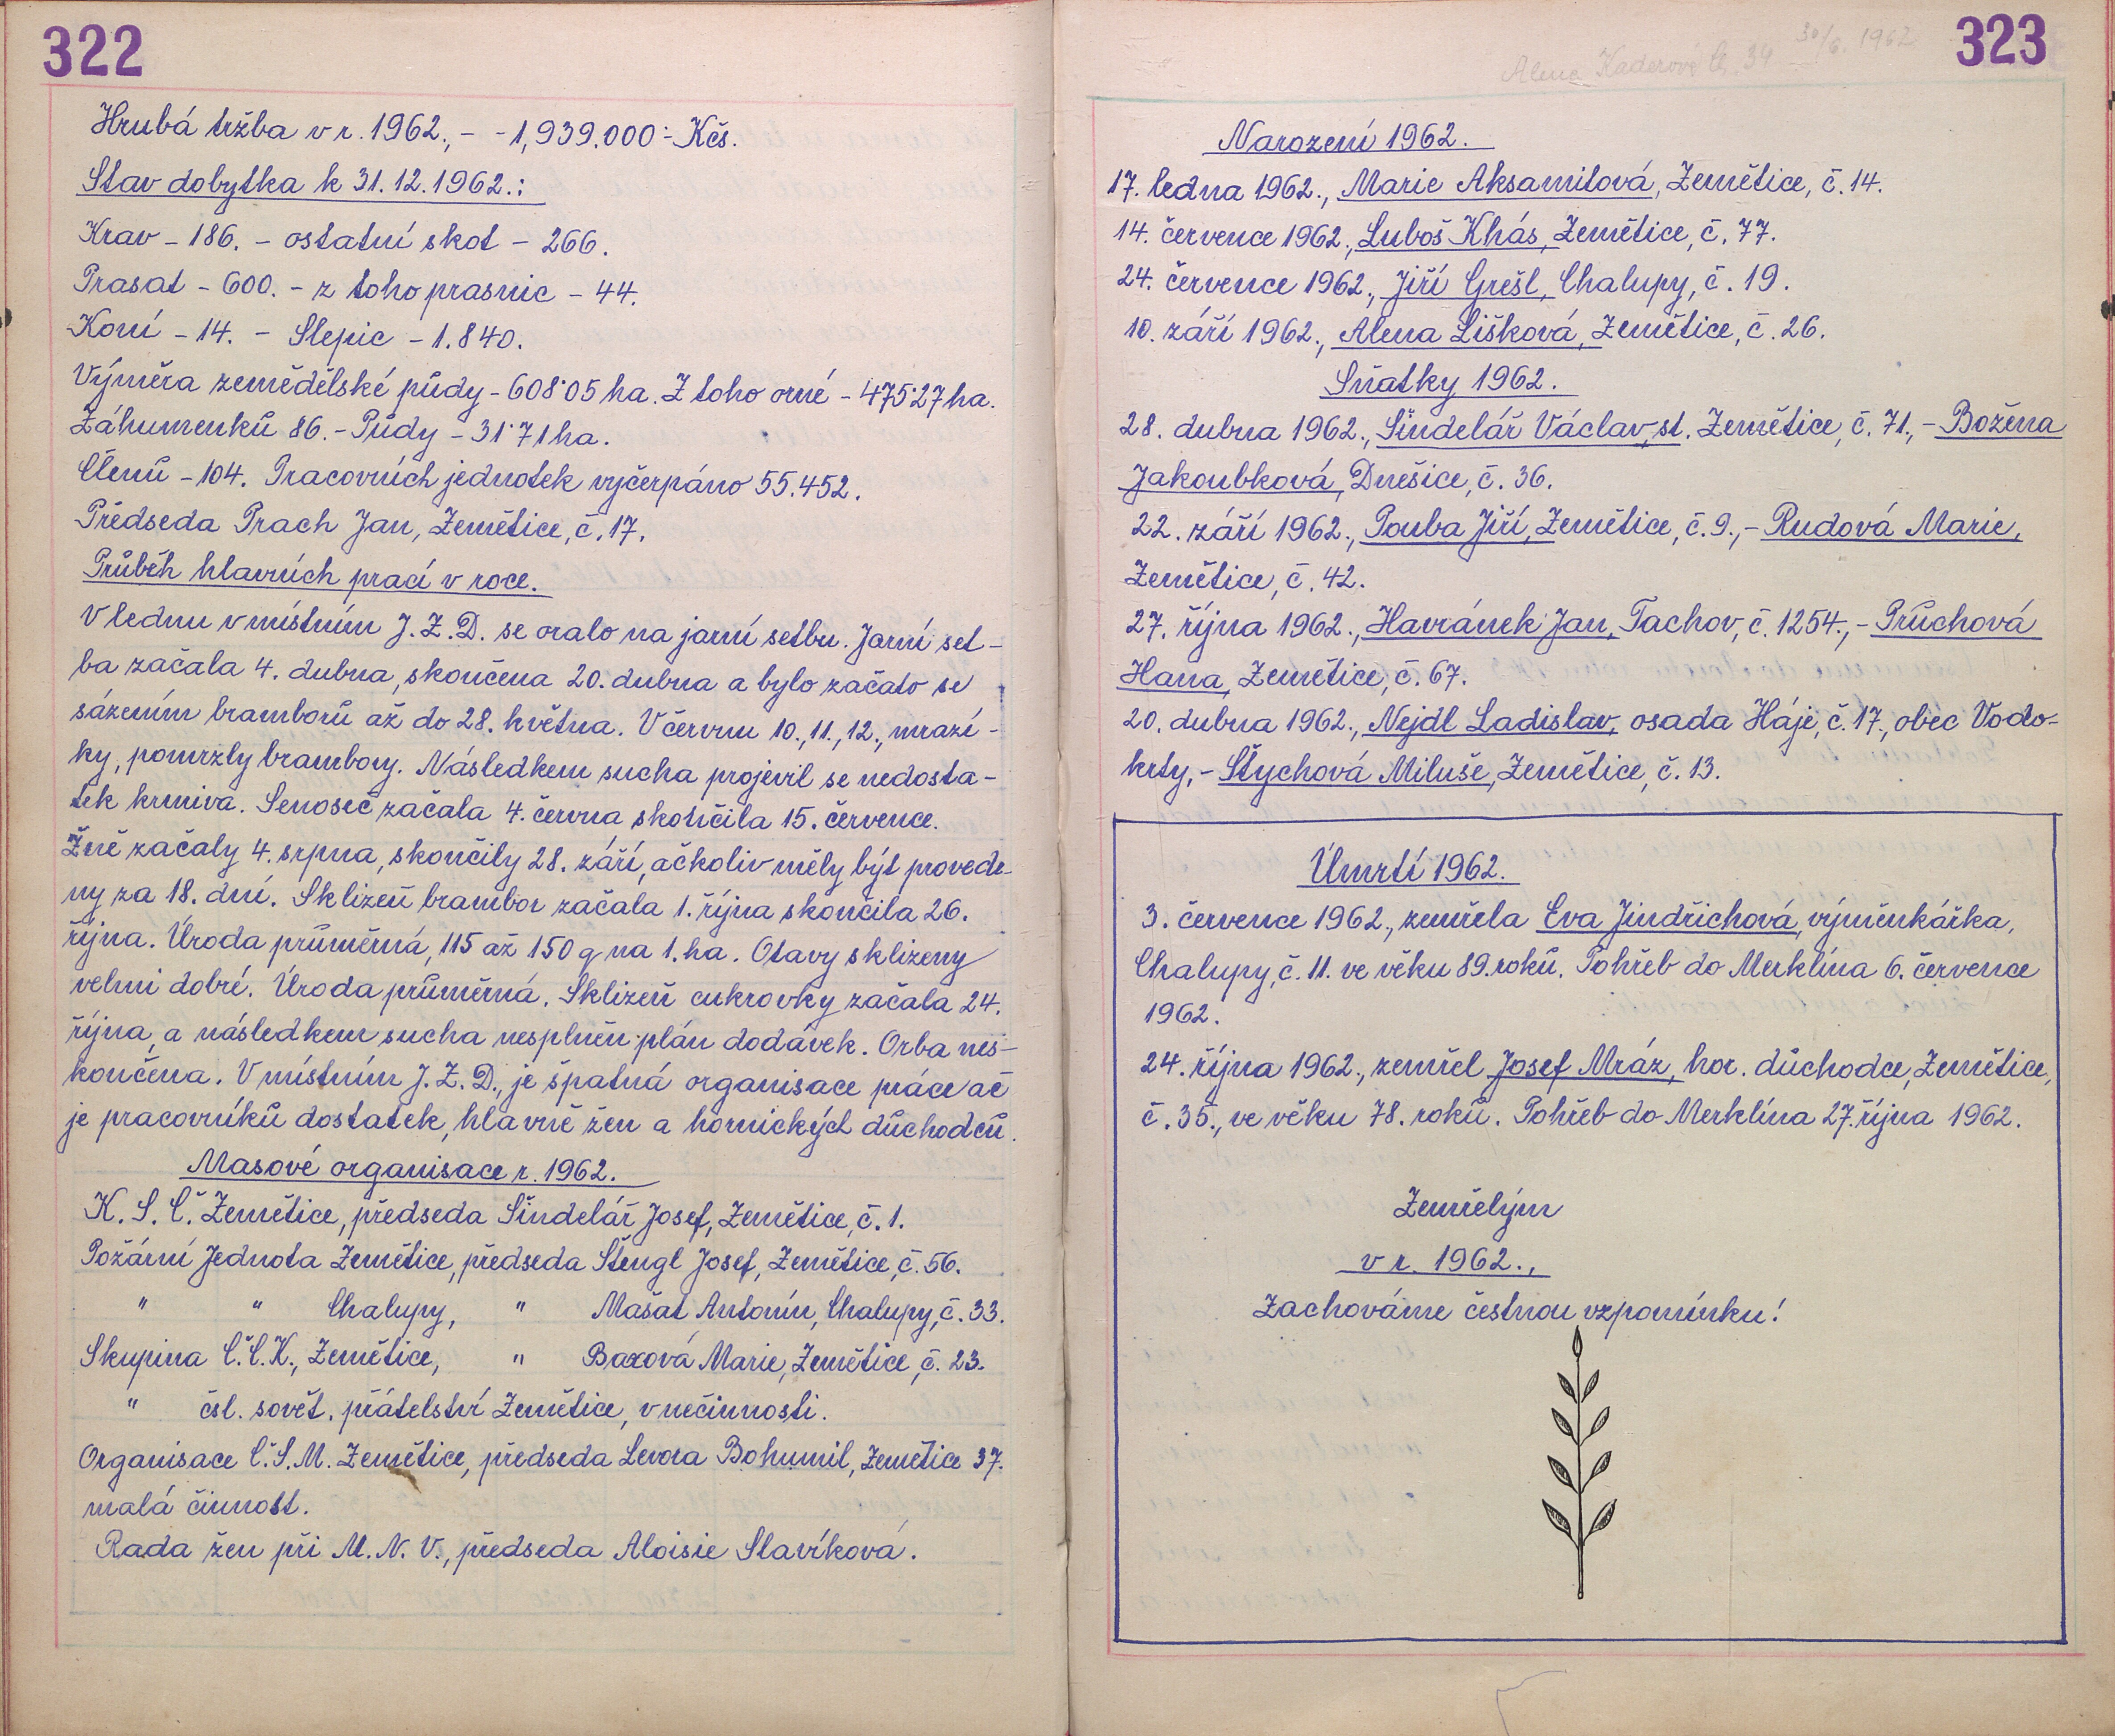 322
Hrubá tržba v r. 1962., - - 1,939.000·- Kčs.
Stav dobytka k 31. 12. 1962.:
Krav - 186. - ostatní skot - 266.
Prasat - 600. - z toho prasnic - 44.
Koní - 14. - Slepic - 1.840.
Výměra zemědělské půdy - 608·05 ha. Z toho orné - 475·27 ha.
Záhumenků 86. - Půdy - 31·71 ha.
Členů - 104. Pracovních jednotek vyčerpáno 55.452.
Předseda Prach Jan, Zemětice, č. 17.
Průběh hlavních prací v roce.
V lednu v místním J. Z. D. se oralo na jarní setbu. Jarní set-
ba začala 4. dubna, skončena 20. dubna a bylo začato se
sázením bramborů až do 28. května. V červnu 10., 11., 12., mrazí-
ky, pomrzly brambory. Následkem sucha projevil se nedosta-
tek krmiva. Senoseč začala 4. června skončila 15. července.
Žně začaly 4. srpna, skončily 28. září, ačkoliv měly být provede-
ny za 18. dní. Sklizeň brambor začala 1. října skončila 26.
října. Úroda průměrná, 115 až 150 q na 1. ha. Otavy sklizeny
velmi dobré. Úroda průměrná. Sklizeň cukrovky začala 24.
října, a následkem sucha nesplněn plán dodávek. Orba nes-
končena. V místním J. Z. D., je špatná organisace práce ač
je pracovníků dostatek, hlavně žen a hornických důchodců.
Masové organisace r. 1962.
K. S. Č. Zemětice, předseda Šindelář Josef, Zemětice, č. 1.
Požární Jednota Zemětice, předseda Štengl Josef, Zemětice, č. 56.
" " Chalupy, " Mašat Antonín, Chalupy, č. 33.
Skupina Č. Č. K., Zemětice, " Baxová Marie, Zemětice, č. 23.
" čsl. sovět. přátelství Zemětice, v nečinnosti.
Organisace Č. S. M. Zemětice, předseda Levora Bohumil, Zemětice 37.
malá činnost.
Rada žen při M. N. V., předseda Aloisie Slavíková.
323
Alena 34 30/6. 1962
Narození 1962.
17. ledna 1962., Marie Aksamitová, Zemětice, č. 14.
14. července 1962., Luboš Khás, Zemětice, č. 77.
24. července 1962., Jiří Grešl, Chalupy, č. 19.
10. září 1962., Alena Lišková, Zemětice, č. 26.
Sňatky 1962.
28. dubna 1962., Šindelář Václav, st. Zemětice, č. 71., - Božena
Jakoubková, Dnešice, č. 36.
22. září 1962., Pouba Jiří, Zemětice, č. 9., - Rudová Marie,
Zemětice, č. 42.
27. října 1962., Havránek Jan, Tachov, č. 1254., - Průchová
Hana, Zemětice, č. 67.
20. dubna 1962., Nejdl Ladislav, osada Háje, č. 17., obec Vodo-
krty, - Štychová Miluše, Zemětice, č. 13.
Úmrtí 1962.
3. července 1962., zemřela Eva Jindřichová, výměnkářka,
Chalupy, č. 11. ve věku 89. roků. Pohřeb do Merklína 6. července
1962.
24. října 1962., zemřel Josef Mráz, hor. důchodce, Zemětice,
č. 35., ve věku 78. roků. Pohřeb do Merklína 27. října 1962.
Zemřelým
v r. 1962.,
Zachováme čestnou vzpomínku!